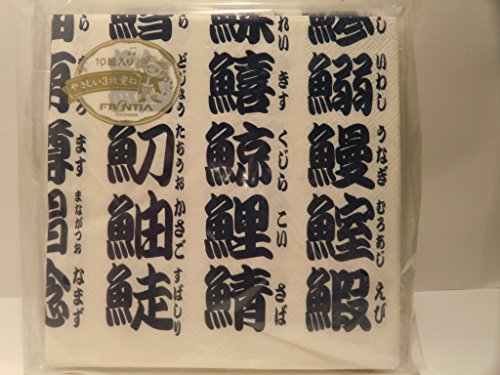 10組入り
やさしい3枚重ね
FRONTIA
YOKOHAMA
し
鰯 いわし
鰻 うなぎ
鰘 むろあじ
鰕 えび
れい
鱚 きす
鯨 くじら
鯉 こい
鯖 さば
どじょう
魛 たちうお
鮋 かさご
鯐 すばしり
ます
まながつお
なまず